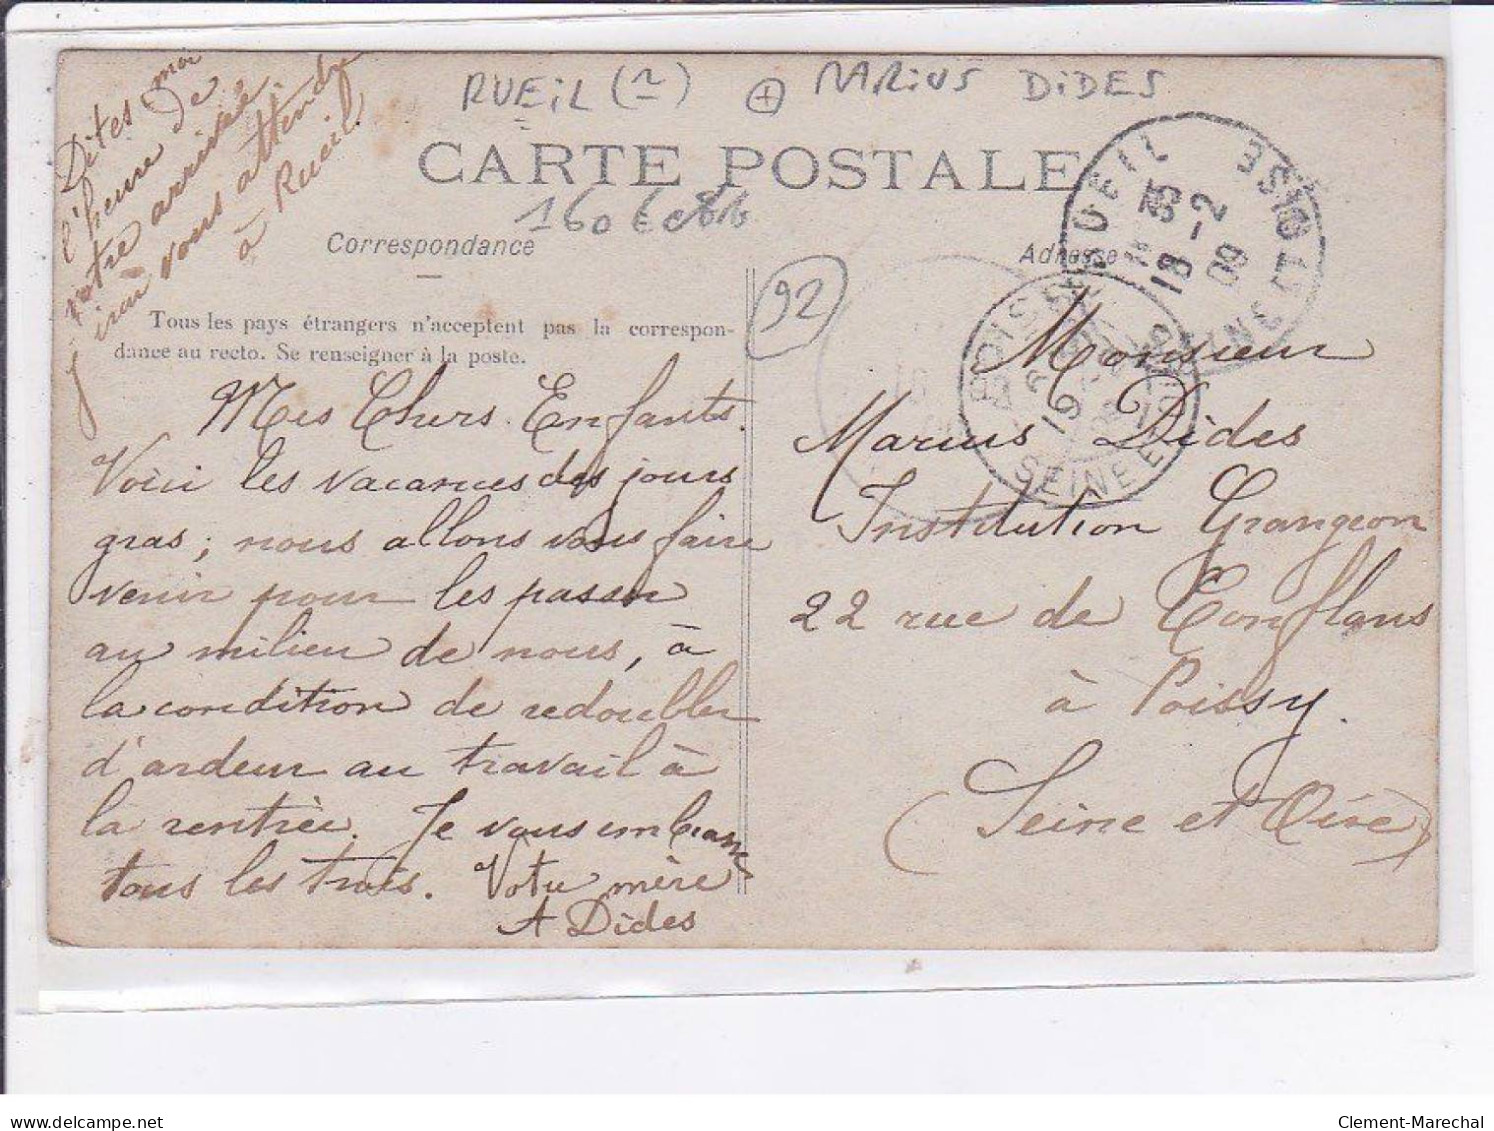 RUEIL (2) + MARIUS DIDES
Dites moi
l'heure de
votre arrivée.
j'irai vous attendre
à Rueil
CARTE POSTALE
160
Correspondance
Adresse
92
RUEIL
SEINE ET OISE
18 -2
09
POISSY
SEINE ET OISE
19
Tous les pays étrangers n'acceptent pas la correspon-
dance au recto. Se renseigner à la poste.
Mes Chers Enfants.
Voici les vacances des jours
gras ; nous allons vous faire
venir pour les passer
au milieu de nous, à
la condition de redoubler
d'ardeur au travail à
la rentrée. Je vous embrasse
tous les trois. Votre mère
A Dides
Monsieur
Marius Dides
Institution Grangeon
22 rue de Conflans
à Poissy.
(Seine et Oise)
Clement-Marechal
www.delcampe.net